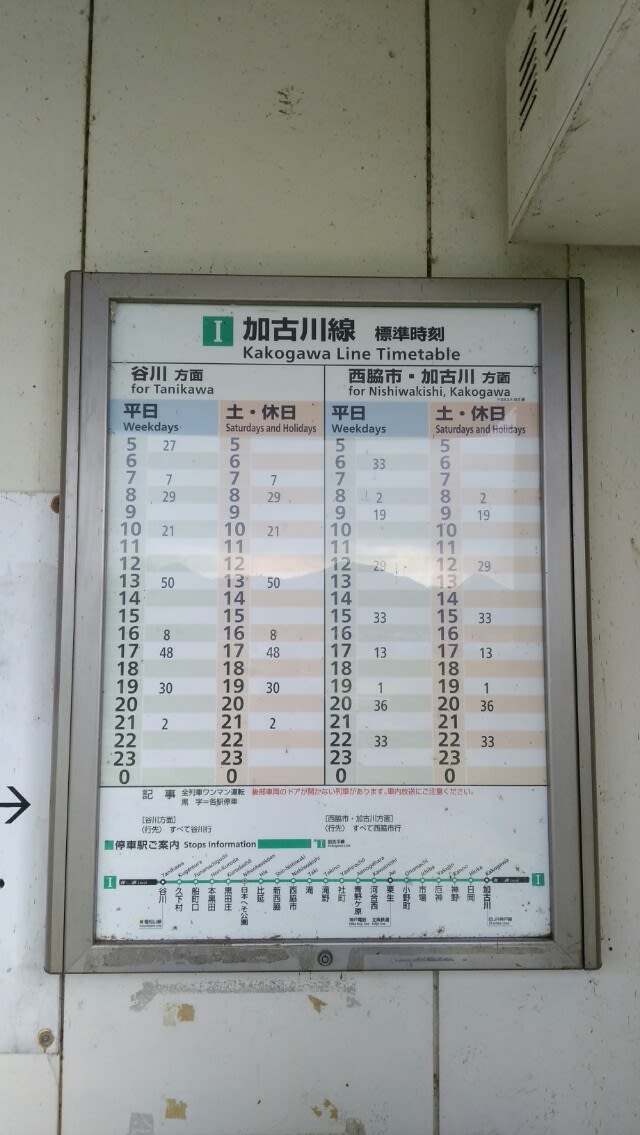 I 加古川線 標準時刻
Kakogawa Line Timetable
谷川 方面
for Tanikawa
西脇市・加古川 方面
for Nishiwakishi, Kakogawa
平日 土・休日 平日 土・休日
Weekdays Saturdays and Holidays Weekdays Saturdays and Holidays
5 27 5 5 5
6 6 6 33 6
7 7 7 7 7 7
8 29 8 29 8 2 8 2
9 9 9 19 9 19
10 21 10 21 10 10
11 11 11 11
12 12 12 29 12 29
13 50 13 50 13 13
14 14 14 14
15 15 15 33 15 33
16 8 16 8 16 16
17 48 17 48 17 13 17 13
18 18 18 18
19 30 19 30 19 1 19 1
20 20 20 36 20 36
21 2 21 2 21 21
22 22 22 33 22 33
23 23 23 23
0 0 0 0
記 事 全列車ワンマン運転 後部車両のドアが開かない列車があります。車内放送にご注意ください。
黒 字=各駅停車
[谷川方面]
(行先) すべて谷川行
[西脇市・加古川方面]
(行先) すべて西脇市行
停車駅ご案内 Stops information
I 加古川線
Kakogawa Line
I
谷川 久下村 船町口 本黒田 黒田庄 日本へそ公園 比延 新西脇 西脇市 滝 滝野 社町 青野ヶ原 河合西 粟生 小野町 市場 厄神 神野 日岡 加古川
I